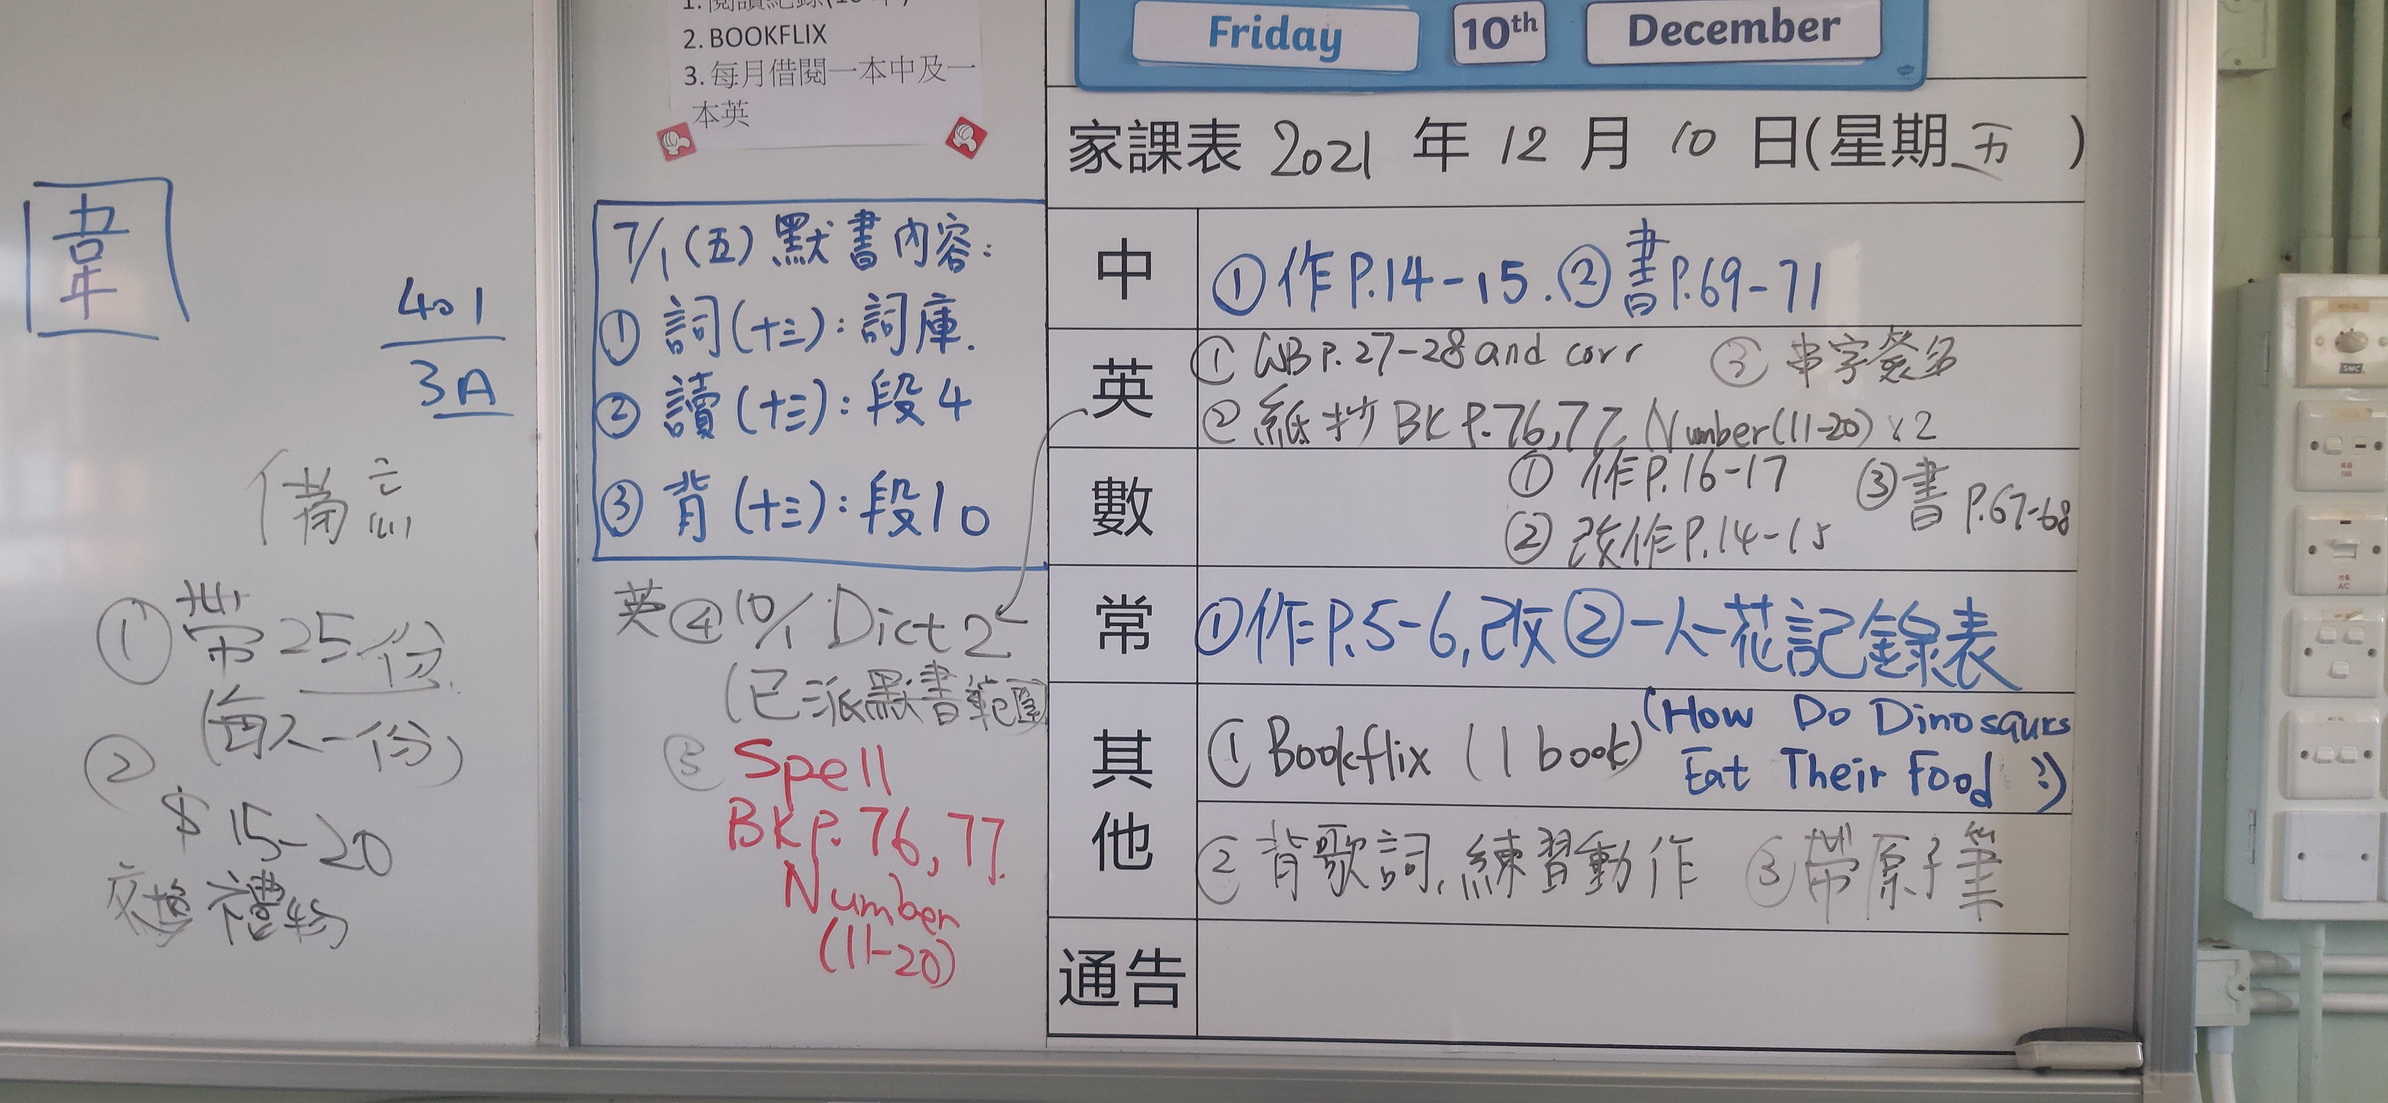 韋
401
3A
備忘
① 帶25份
(每人一份)
② $15-20
交換禮物
2. BOOKFLIX
3. 每月借閱一本中及一
本英
7/1(五)默書內容:
① 詞(十三):詞庫.
② 讀(十三):段4
③ 背(十三):段10
英④10/1 Dict 2
(已派默書範圍)
Spell
BK P. 76, 77.
Number
(11-20)
Friday 10th December
家課表 2021 年 12 月 10 日(星期五)
中 ①作P.14-15.②書P.69-71
英 ① WB P. 27-28 and corr ③ 串字簽名
② 紙抄 BK P. 76, 77, Number(11-20) x2
數 ① 作P.16-17 ③書 P.67-68
② 改作P.14-15
常 ①作P.5-6,改②一人一花記錄表
其他 ① Bookflix (1 book) (How Do Dinosaurs
Eat Their Food ?)
② 背歌詞,練習動作 ③帶原子筆
通告